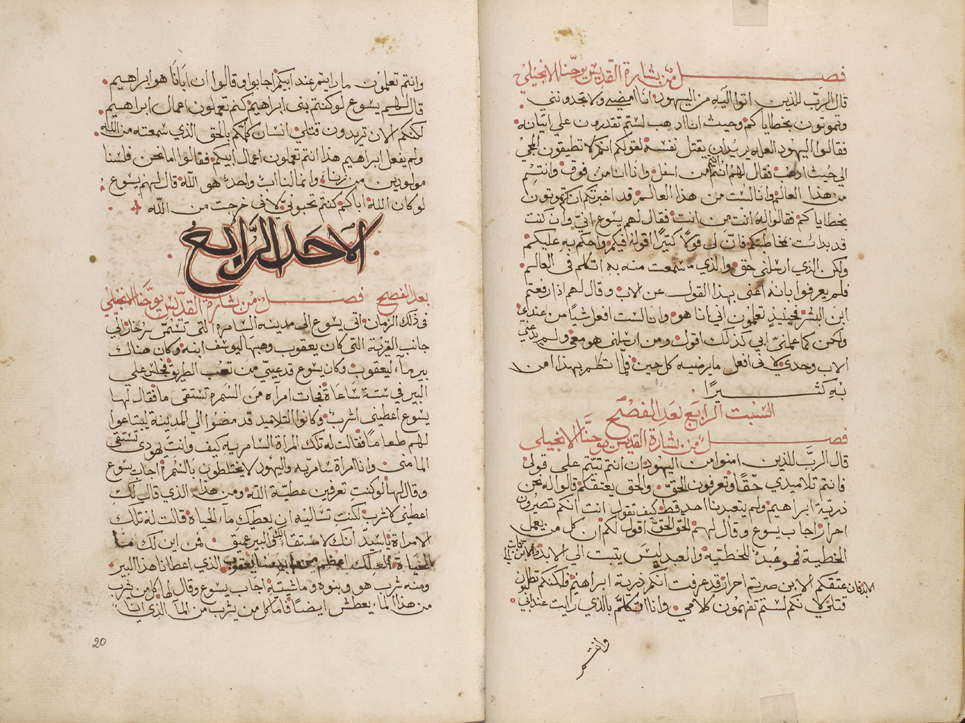 فصل من بشارة القديس يوحنا الانجيلي
قال الرب للذين اتوا اليه من اليهود انا امضي ولا تجدونني
وتموتون بخطاياكم وحيث انا اذهب لستم تقدرون على اتيانه
فقالوا اليهود العله يريد ان يقتل نفسه لقوله انكم لا تطيقون المجي
الى حيث اذهب فقال لهم انتم من اسفل وانا انا من فوق وانتم
من هذا العالم وانا لست من هذا العالم قد اخبرتكم انكم تموتون
بخطاياكم فقالوا له انت من انت فقال لهم يسوع اني وان كنت
قد بدات بمخاطبتكم فان لي قولا كثيرا اقوله فيكم واحكم به عليكم
ولكن الذي ارسلني حق والذي سمعت منه به اتكلم في العالم
فلم يعرفوا بانه اعنى بهذا القول عن الاب وقال لهم اذا رفعتم
ابن البشر فحينيذ تعلمون اني انا هو وانا لست افعل شيا من عندي
ولكن كما علمني ابي كذلك اقول ومن ارسلني هو معي ولم يدعني
الاب وحدي لاني افعل ما يرضيه كل حين فلما تكلم بهذا امن
به كثيرا
السبت الرابع بعد الفصح
فصل من بشارة القديس يوحنا الانجيلي
قال الرب للذين امنوا من اليهود ان انتم ثبتم على قولي
فانتم تلاميذي حقا وتعرفون الحق والحق يعتقكم قالوا له نحن
ذرية ابراهيم ولم يتعبدنا احد قط كيف تقول انت انكم تصيرون
احرار اجاب يسوع وقال لهم الحق الحق اقول لكم ان كل من يعمل
الخطية فهو عبد للخطية والعبد ليس يثبت الى الابد
فان عتقكم الابن صرتم احرار قد عرفت انكم ذرية ابراهيم ولكنكم تطلبون
قتلي لان كلامي لستم تفهمون وانا اتكلم بالذي رايت عند ابي
وانتم
وانتم تعملون ما رايتم عند ابيكم اجابوا وقالوا ان ابانا هو ابراهيم
قال لهم يسوع لو كنتم بني ابراهيم كنتم تعملون اعمال ابراهيم
لكنكم الان تريدون قتلي انسان كلمتكم بالحق الذي سمعته من الله
ولم يفعل ابراهيم هذا انتم تعملون اعمال ابيكم فقالوا اما نحن فلسنا
مولودين من زناء وانما لنا اب واحد هو الله قال لهم يسوع
لو كان الله اباكم كنتم تحبوني لاني خرجت من الله
الاحد الرابع
بعد الفصح فصل من بشارة القديس يوحنا الانجيلي
في ذلك الزمان اتى يسوع الى مدينة السامرة التي تسمى سوخار الى
جانب القرية التي كان يعقوب وهبها ليوسف ابنه وكان هناك
بير ماء ليعقوب وكان يسوع قد عيي من تعب الطريق فجلس على
البير في ستة ساعة فجات امراه من السمره تستقي ما فقال لها
يسوع اعطيني اشرب وكانوا التلاميذ قد مضوا الى المدينة ليبتاعوا
لهم طعاما فقالت له تلك المراة السامرية كيف وانت يهودي تستقي
الما مني وانا امراة سامرية واليهود لا يختلطون بالسمرة اجاب يسوع
وقال لها لو كنت تعرفين عطية الله ومن هذا الذي قال لك
اعطيني لاشرب لكنت تساليه ان يعطيك ماء الحياة قالت له تلك
الامراة يا سيد انك لا مستقا لك والبير عميق فمن اين لك ماء
الحياة لعلك اعظم من ابينا يعقوب الذي اعطانا هذا البير
ومنه شرب هو وبنوه وماشيته اجاب يسوع وقال لها كل من يشرب
من هذا الماء يعطش ايضا فاما كل من يشرب من الما الذي انا
20